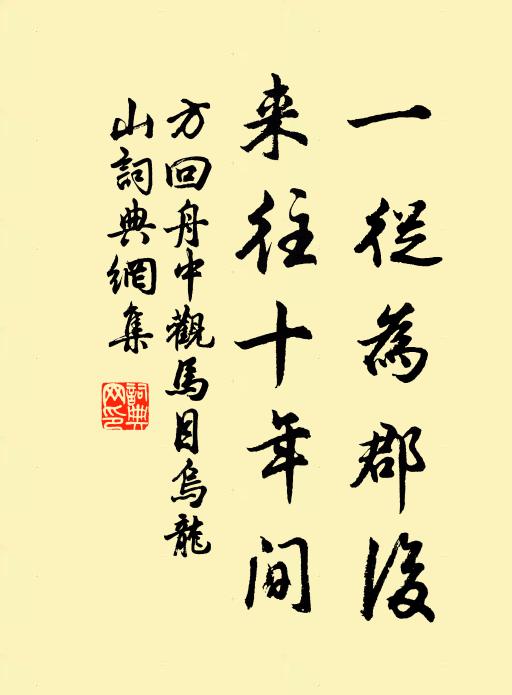 一從為郡後
来往十年間
方回舟中觀馬目烏龍
山詞典網集
詞典
网印